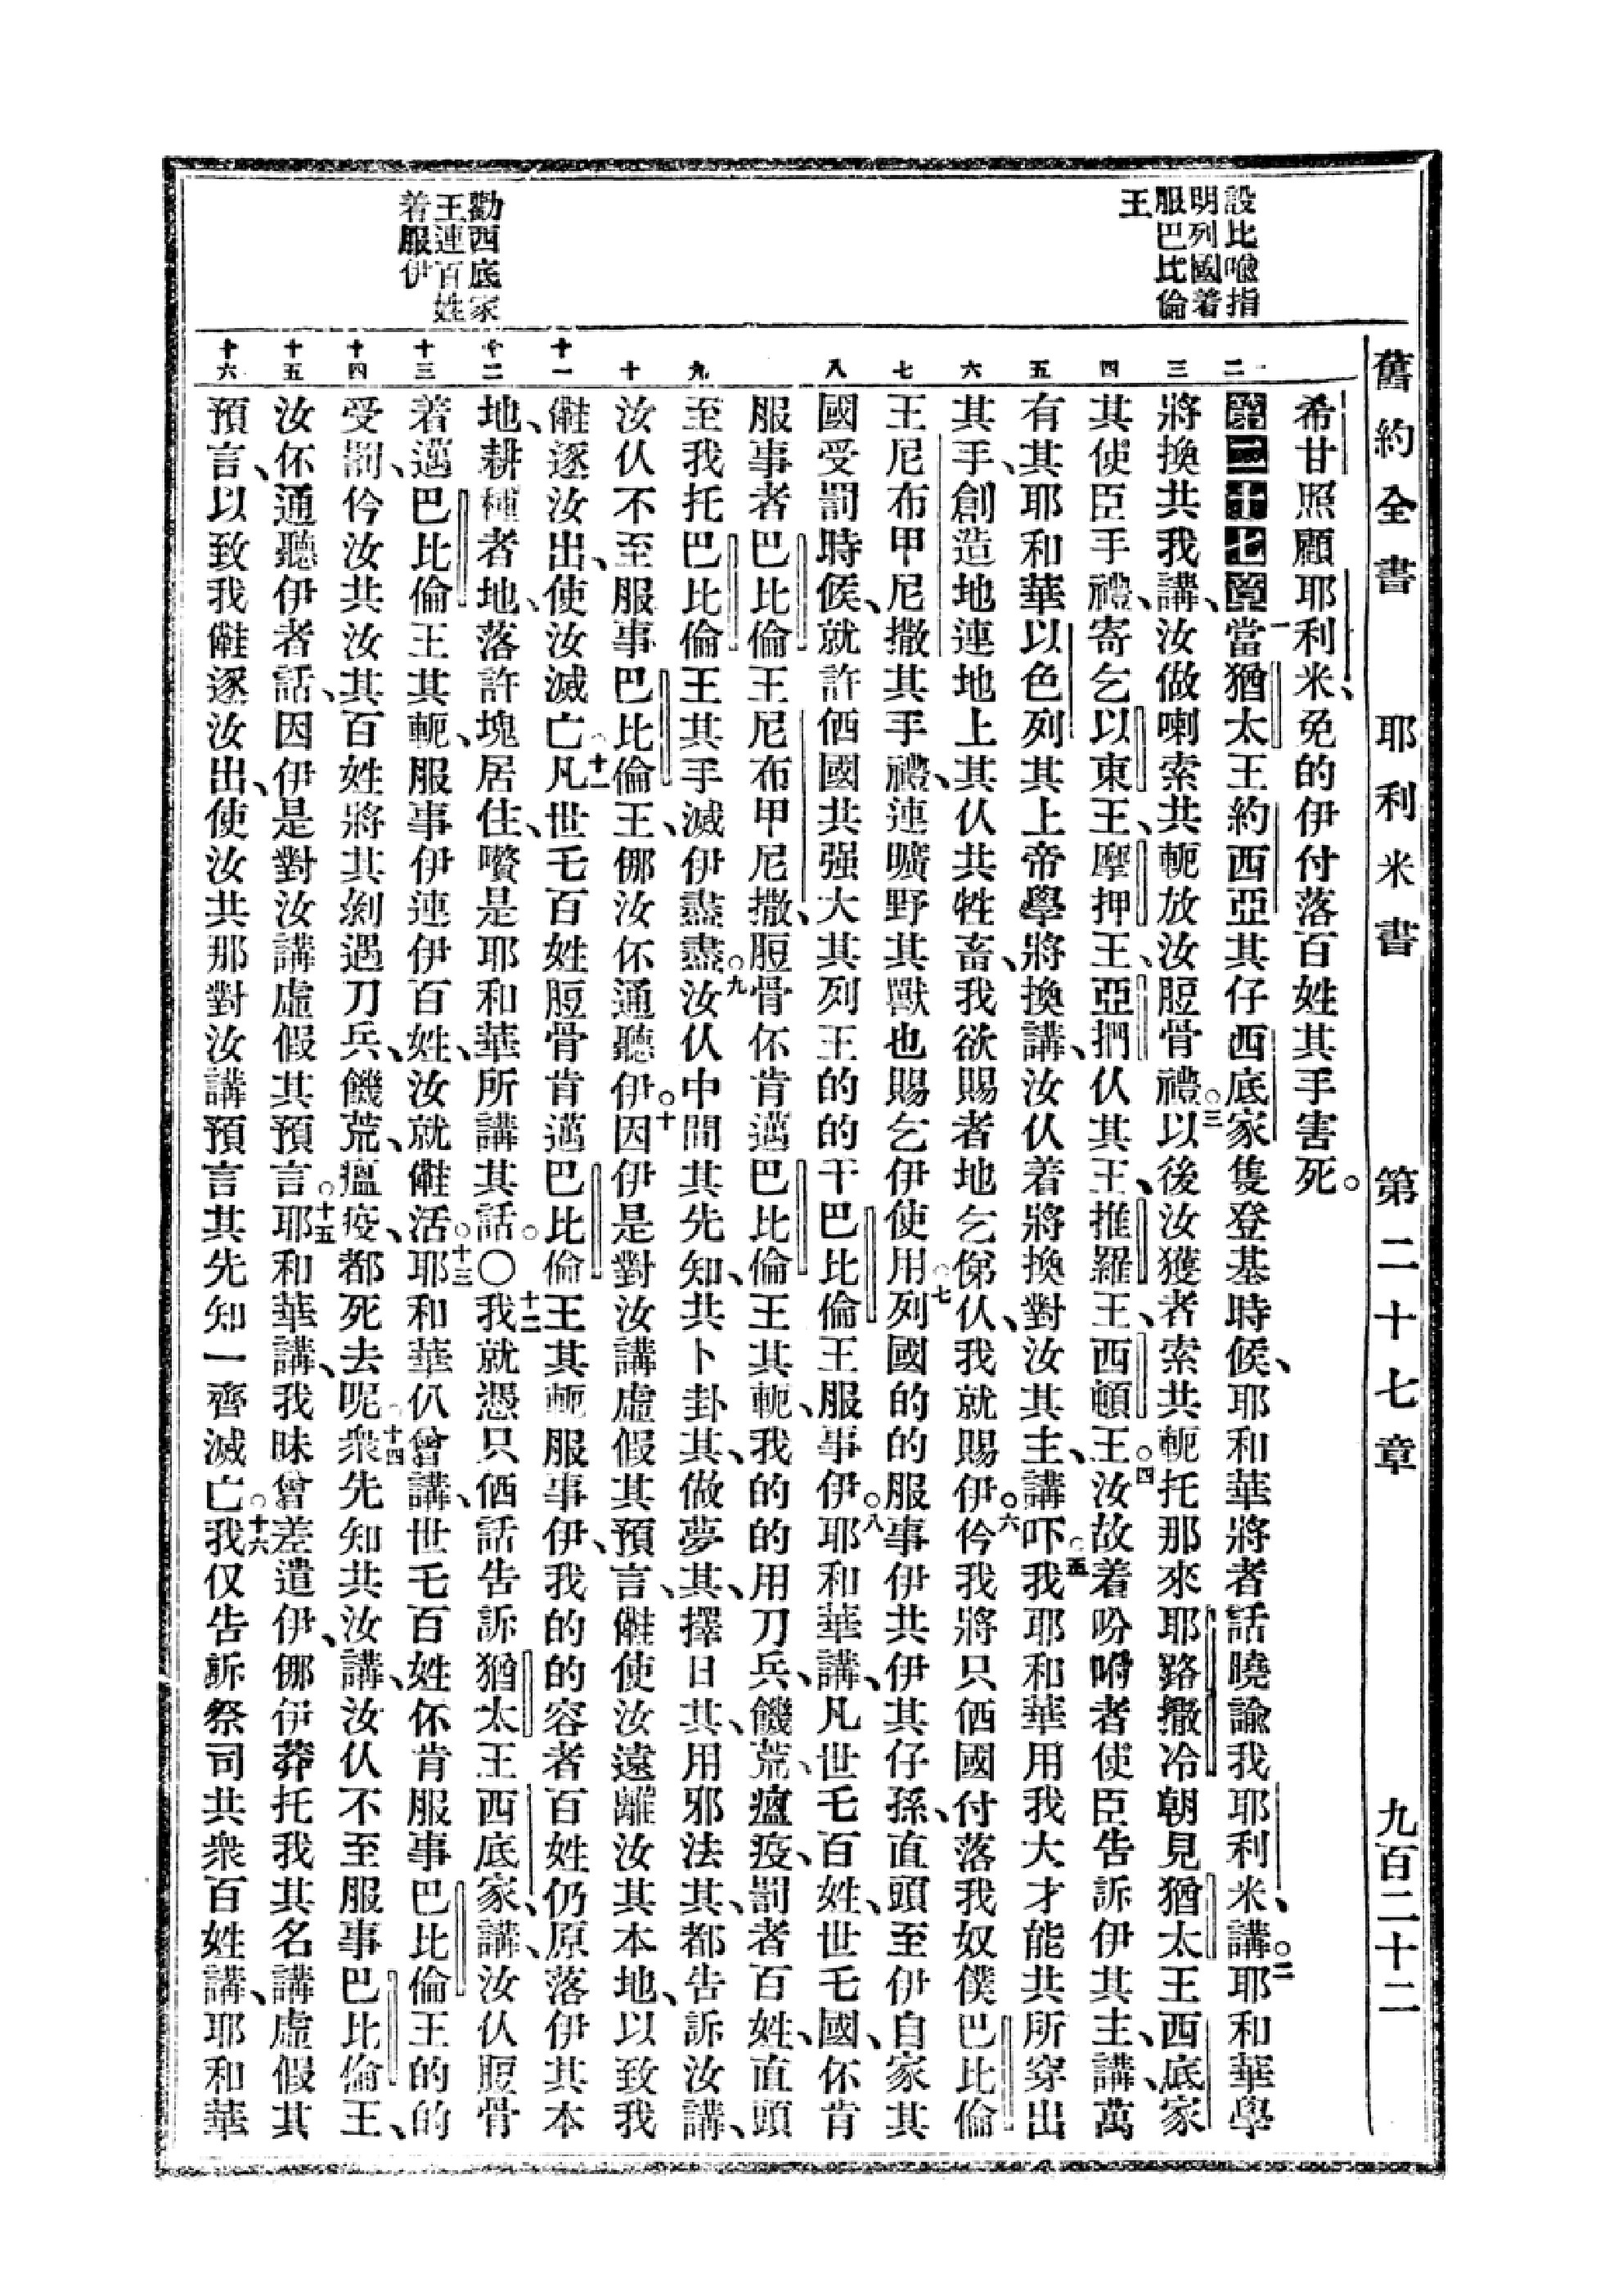 舊約全書 耶利米書 第二十七章 九百二十二
設比喻指
明列國着
服巴比倫
王
勸西底家
王連百姓
着服伊
一二 三 四 五 六 七 八 九 十 十一 十二 十三 十四 十五 十六
希甘照顧耶利米、免的伊付落百姓其手害死。
第二十七章一當猶太王約西亞其仔西底家隻登基時候、耶和華將者話曉諭我耶利米、講。二耶和華學
將換共我講、汝做喇索共軛放汝脰骨禮。三以後汝獲者索共軛托那來耶路撒冷朝見猶太王西底家
其使臣手禮、寄乞以東王、摩押王、亞捫仈其王、推羅王、西頓王。四汝故着吩咐者使臣告訴伊其主、講、萬
有其耶和華以色列其上帝學將換講、汝仈着將換對汝其主、講。五吓我耶和華用我大才能共所穿出
其手、創造地連地上其仈共牲畜、我欲賜者地乞俤仈、我就賜伊。六仱我將只俩國付落我奴僕巴比倫
王尼布甲尼撒其手禮、連曠野其獸也賜乞伊使用。七列國的的服事伊共伊其仔孫、直頭至伊自家其
國受罰時候、就許俩國共强大其列王的的干巴比倫王服事伊。八耶和華講、凡世乇百姓、世乇國、伓肯
服事者巴比倫王尼布甲尼撒、脰骨伓肯邁巴比倫王其軛、我的的用刀兵、饑荒、瘟疫、罰者百姓、直頭
至我托巴比倫王其手滅伊盡盡。九汝仈中間其先知、共卜卦其、做夢其、擇日其、用邪法其、都告訴汝講、
汝仈不至服事巴比倫王、㑚汝伓通聽伊。十因伊是對汝講虛假其預言、儺使汝遠離汝其本地、以致我
儺逐汝出、使汝滅亡。十一凡世乇百姓脰骨肯邁巴比倫王其軛服事伊、我的的容者百姓仍原落伊其本
地、耕種者地、落許塊居住、嚽是耶和華所講其話。〇十二我就憑只俩話告訴猶太王西底家、講、汝仈脰骨
着邁巴比倫王其軛、服事伊連伊百姓、汝就儺活。十三耶和華仈曾講、世乇百姓伓肯服事巴比倫王的的
受罰、仱汝共汝其百姓將其剜遇刀兵、饑荒、瘟疫、都死去呢。十四衆先知共汝講、汝仈不至服事巴比倫王、
汝伓通聽伊者話、因伊是對汝講虛假其預言。十五耶和華講、我昧曾差遣伊、㑚伊莽托我其名講虛假其
預言、以致我儺逐汝出、使汝共那對汝講預言其先知一齊滅亡。十六我仅告訴祭司共衆百姓講、耶和華